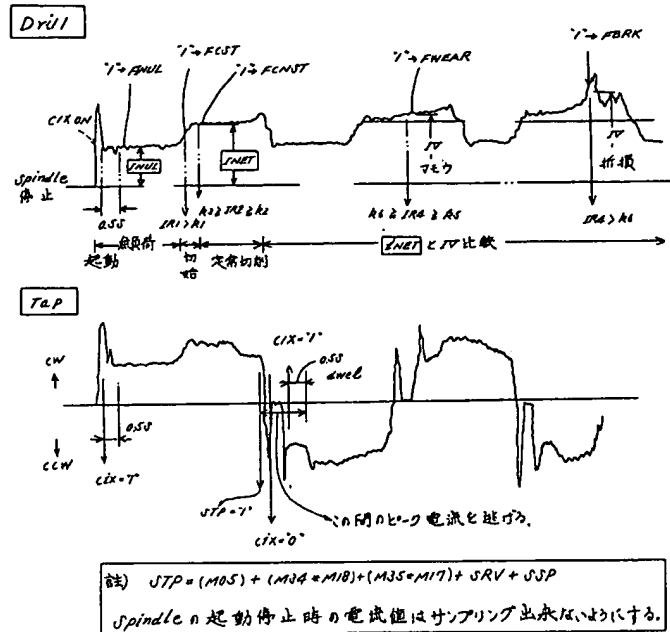 Drill
"1"→FNUL
"1"→FCST
"1"→FCNST
"1"→FWEAR
"1"→FBRK
CIX ON
INUL
INET
IV
マモウ
IV
折損
spindle
停止
0.5S
IR1>k1
k3≧IR2≧k2
k6≧IR4≧k5
IR4>k6
起動
無負荷
切始
定常切削
INETとIV比較
Tap
CW
CCW
0.5S
CIX="1"
CIX="1"
0.5S
dwel
STP="1"
CIX="0"
この間のピーク電流を逃げる.
註) STP=(M05)+(M34*M18)+(M35*M17)+SRV+SSP
spindleの起動停止時の電流値はサンプリング出来ないようにする.